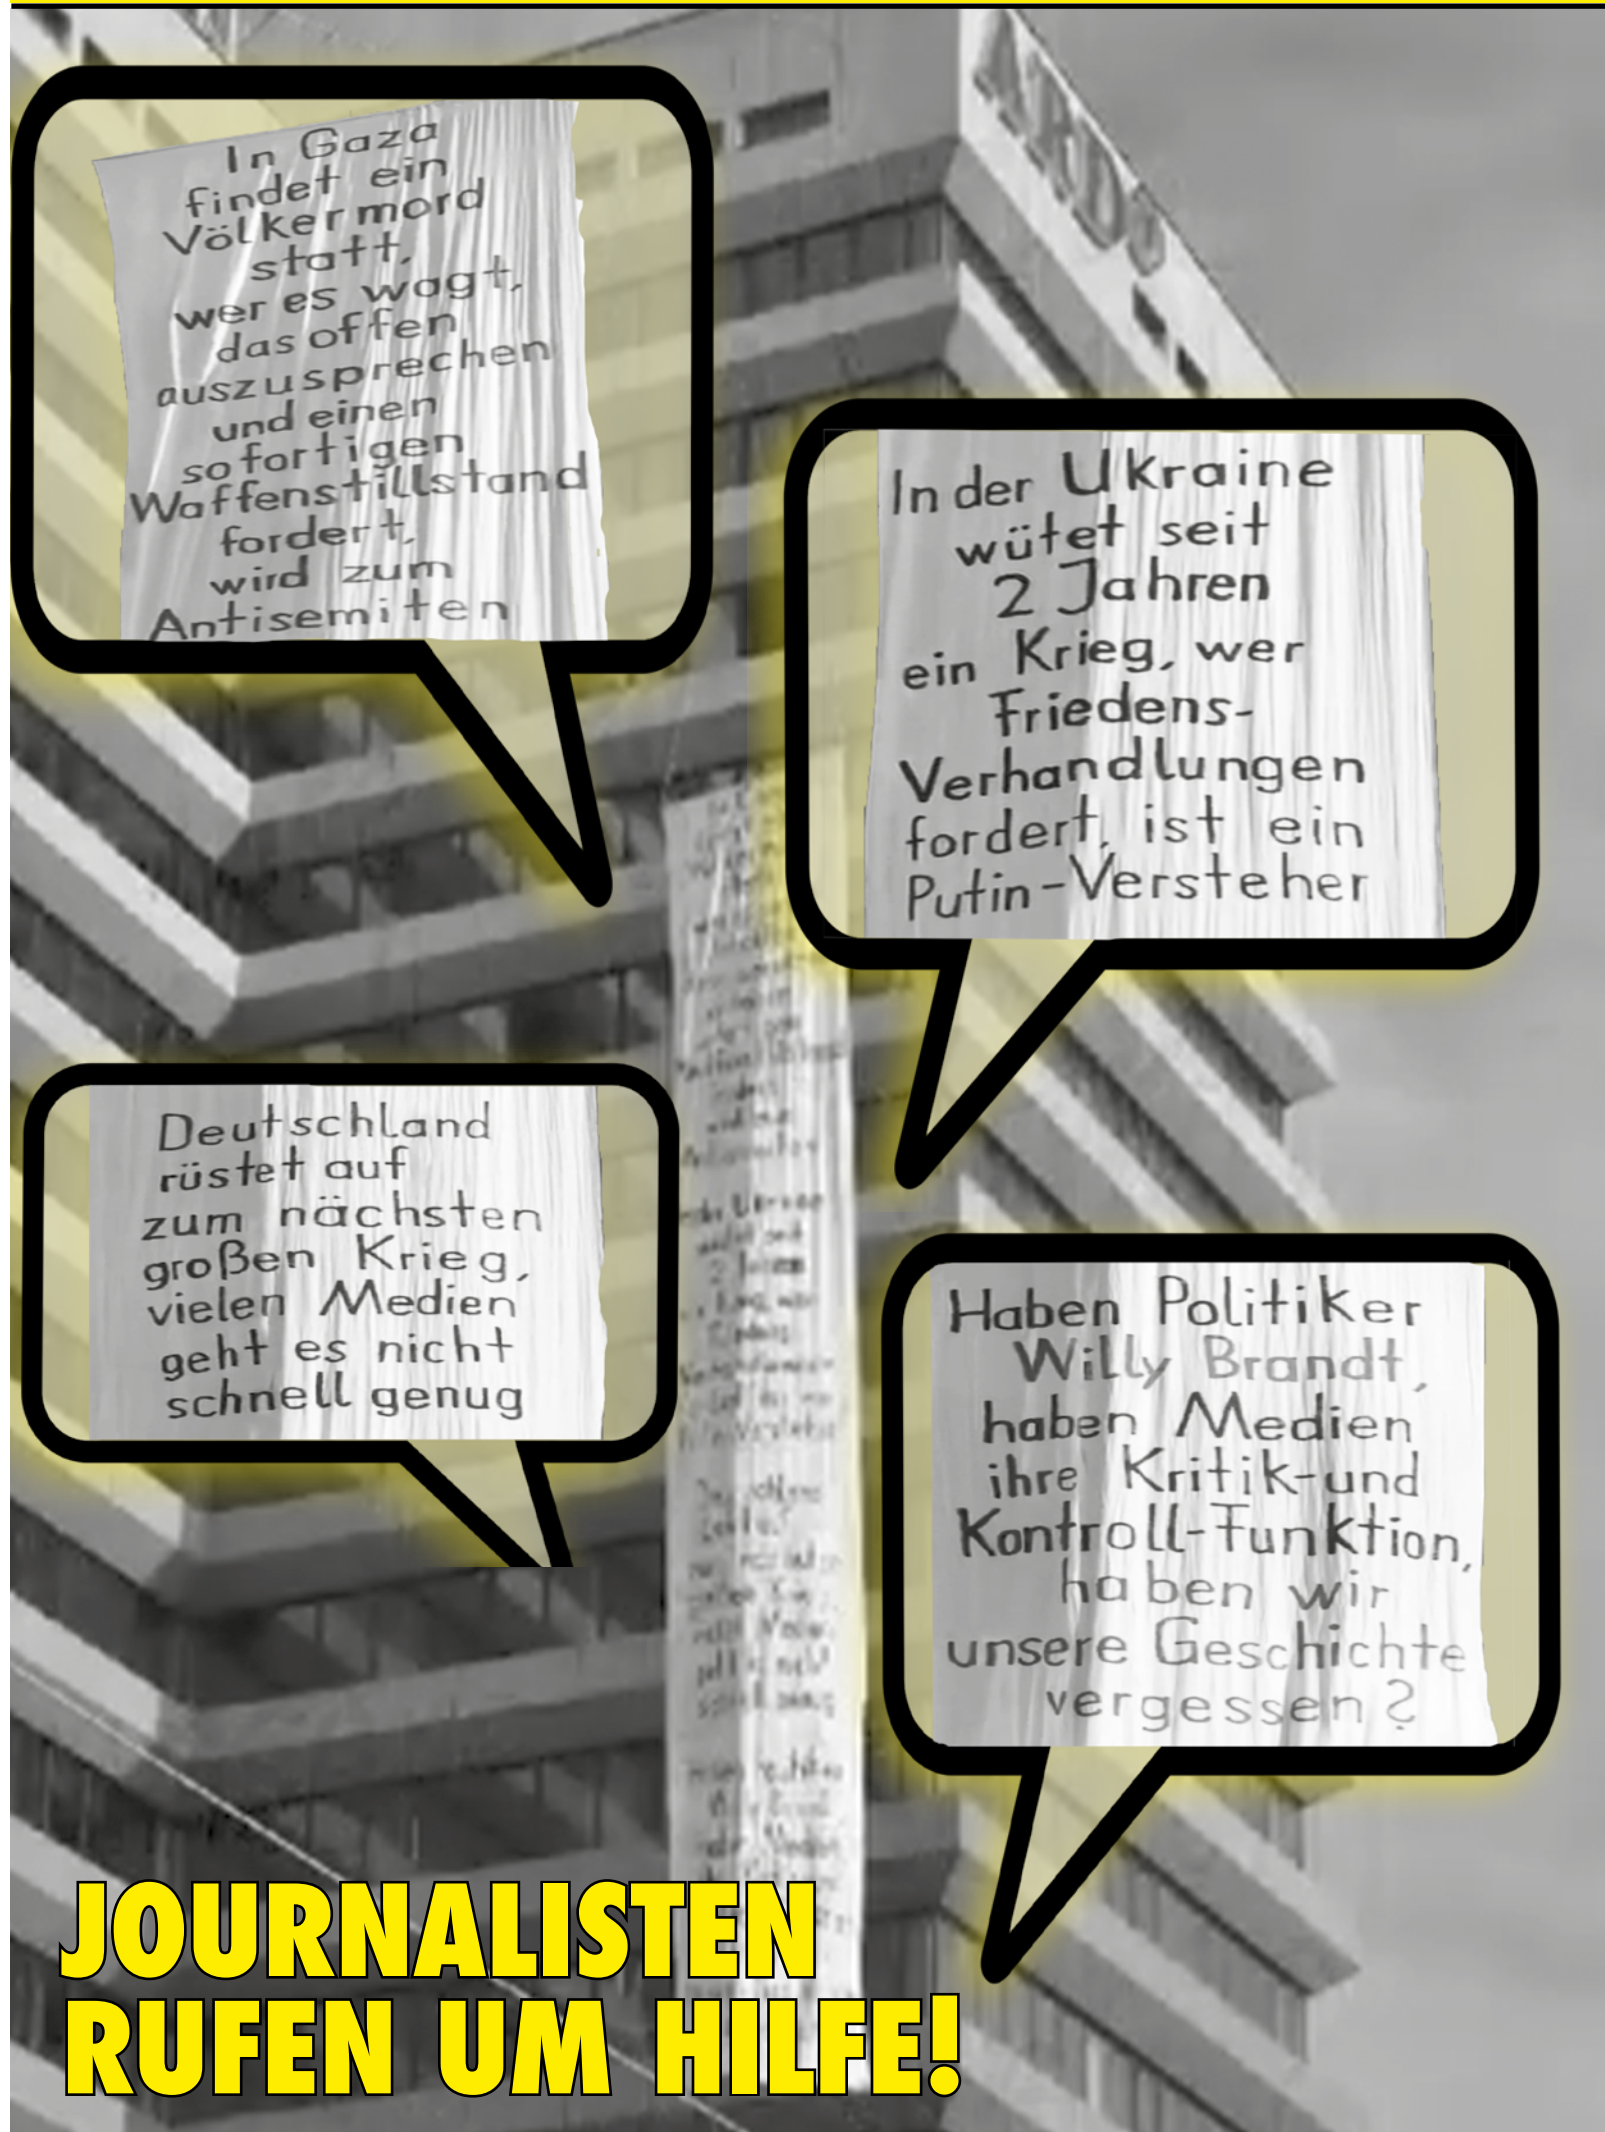 ARD
In Gaza
findet ein
Völkermord
statt,
wer es wagt,
das offen
auszusprechen
und einen
sofortigen
Waffenstillstand
fordert,
wird zum
Antisemiten
In der Ukraine
wütet seit
2 Jahren
ein Krieg, wer
Friedens-
Verhandlungen
fordert, ist ein
Putin-Versteher
Deutschland
rüstet auf
zum nächsten
großen Krieg,
vielen Medien
geht es nicht
schnell genug
Haben Politiker
Willy Brandt,
haben Medien
ihre Kritik-und
Kontroll-Funktion,
haben wir
unsere Geschichte
vergessen?
JOURNALISTEN
RUFEN UM HILFE!